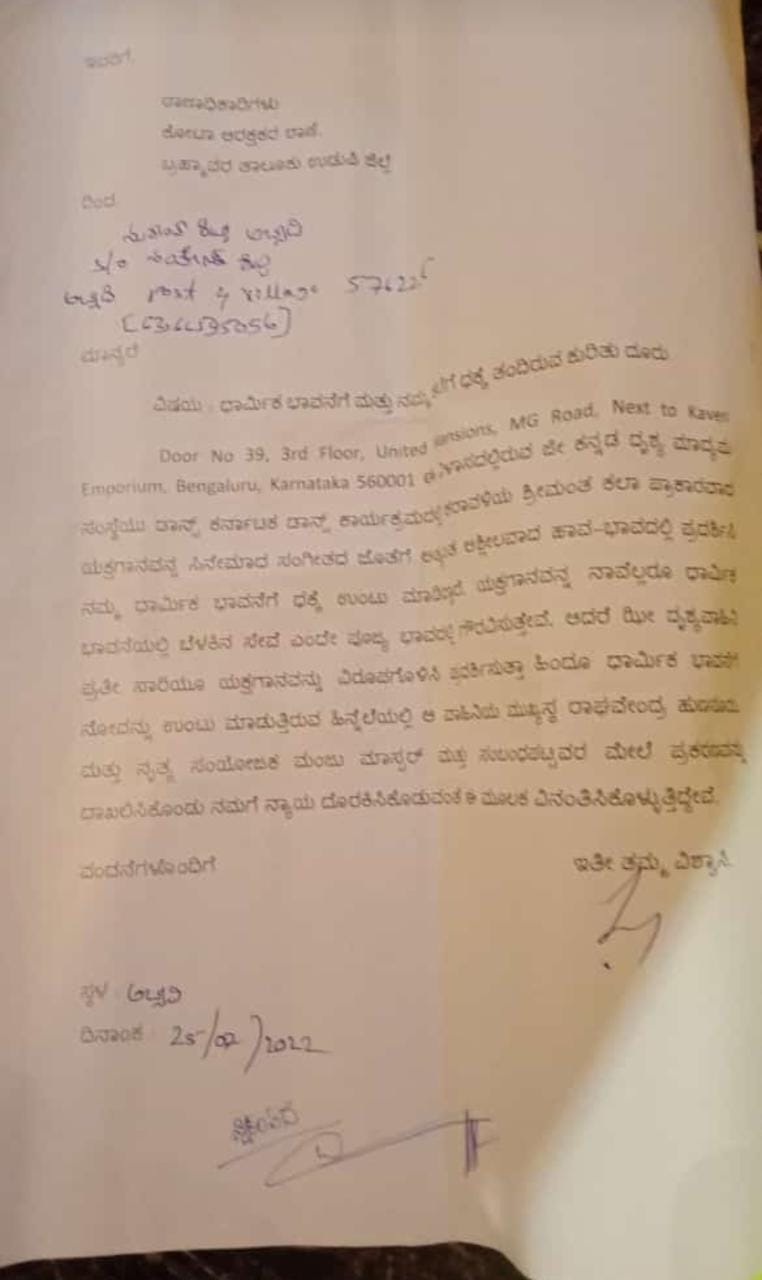 ಇವರಿಗೆ,
ಠಾಣಾಧಿಕಾರಿಗಳು
ಕೋಟಾ ಆರಕ್ಷಕರ ಠಾಣೆ.
ಬ್ರಹ್ಮಾವರ ತಾಲೂಕು ಉಡುಪಿ ಜಿಲ್ಲೆ
ಇಂದ
S/o
post & village 576226
ಮಾನ್ಯರೆ
ವಿಷಯ : ಧಾರ್ಮಿಕ ಭಾವನೆಗೆ ಮತ್ತು ನಮ್ಮ ಧಕ್ಕೆ ತಂದಿರುವ ಕುರಿತು ದೂರು
Door No 39, 3rd Floor, United ansions, MG Road, Next to Kaveri
Emporium, Bengaluru, Karnataka 560001 ಈ ವಿಳಾಸದಲ್ಲಿರುವ ಜೀ ಕನ್ನಡ ದೃಶ್ಯ ಮಾಧ್ಯಮ
ಸಂಸ್ಥೆಯು ಡಾನ್ಸ್ ಕರ್ನಾಟಕ ಡಾನ್ಸ್ ಕಾರ್ಯಕ್ರಮದಲ್ಲಿ ಕರಾವಳಿಯ ಶ್ರೀಮಂತ ಕಲಾ ಪ್ರಾಕಾರವಾದ
ಯಕ್ಷಗಾನವನ್ನ ಸಿನೇಮಾದ ಸಂಗೀತದ ಜೊತೆಗೆ ಅತ್ಯಂತ ಅಶ್ಲೀಲವಾದ ಹಾವ-ಭಾವದಲ್ಲಿ ಪ್ರದರ್ಶಿಸಿ
ನಮ್ಮ ಧಾರ್ಮಿಕ ಭಾವನೆಗೆ ಧಕ್ಕೆ ಉಂಟು ಮಾಡಿದ್ದಾರೆ. ಯಕ್ಷಗಾನವನ್ನ ನಾವೆಲ್ಲರೂ ಧಾರ್ಮಿಕ
ಭಾವನೆಯಲ್ಲಿ ಬೆಳಕಿನ ಸೇವೆ ಎಂದೇ ಪೂಜ್ಯ ಭಾವದಲ್ಲಿ ಗೌರವಿಸುತ್ತೇವೆ. ಆದರೆ ಝೀ ದೃಶ್ಯವಾಹಿನಿ
ಪ್ರತೀ ಸಾರಿಯೂ ಯಕ್ಷಗಾನವನ್ನು ವಿರೂಪಗೊಳಿಸಿ ಪ್ರದರ್ಶಿಸುತ್ತಾ ಹಿಂದೂ ಧಾರ್ಮಿಕ ಭಾವನೆಗೆ
ನೋವನ್ನು ಉಂಟು ಮಾಡುತ್ತಿರುವ ಹಿನ್ನೆಲೆಯಲ್ಲಿ ಆ ವಾಹಿನಿಯ ಮುಖ್ಯಸ್ಥ ರಾಘವೇಂದ್ರ ಹುಣಸೂರು
ಮತ್ತು ನೃತ್ಯ ಸಂಯೋಜಕ ಮಂಜು ಮಾಸ್ಟರ್ ಮತ್ತು ಸಂಬಂಧಪಟ್ಟವರ ಮೇಲೆ ಪ್ರಕರಣವನ್ನು
ದಾಖಲಿಸಿಕೊಂಡು ನಮಗೆ ನ್ಯಾಯ ದೊರಕಿಸಿಕೊಡುವಂತೆ ಈ ಮೂಲಕ ವಿನಂತಿಸಿಕೊಳ್ಳುತ್ತಿದ್ದೇವೆ.
ವಂದನೆಗಳೊಂದಿಗೆ ಇತೀ ತಮ್ಮ ವಿಶ್ವಾಸಿ.
ಸ್ಥಳ :
ದಿನಾಂಕ : 25/02/2022